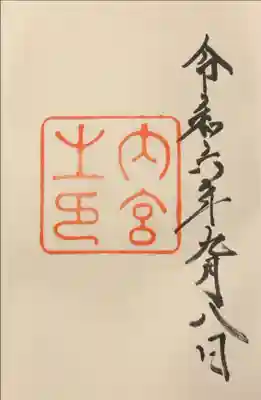 令和六年九月八日
内宮
之印